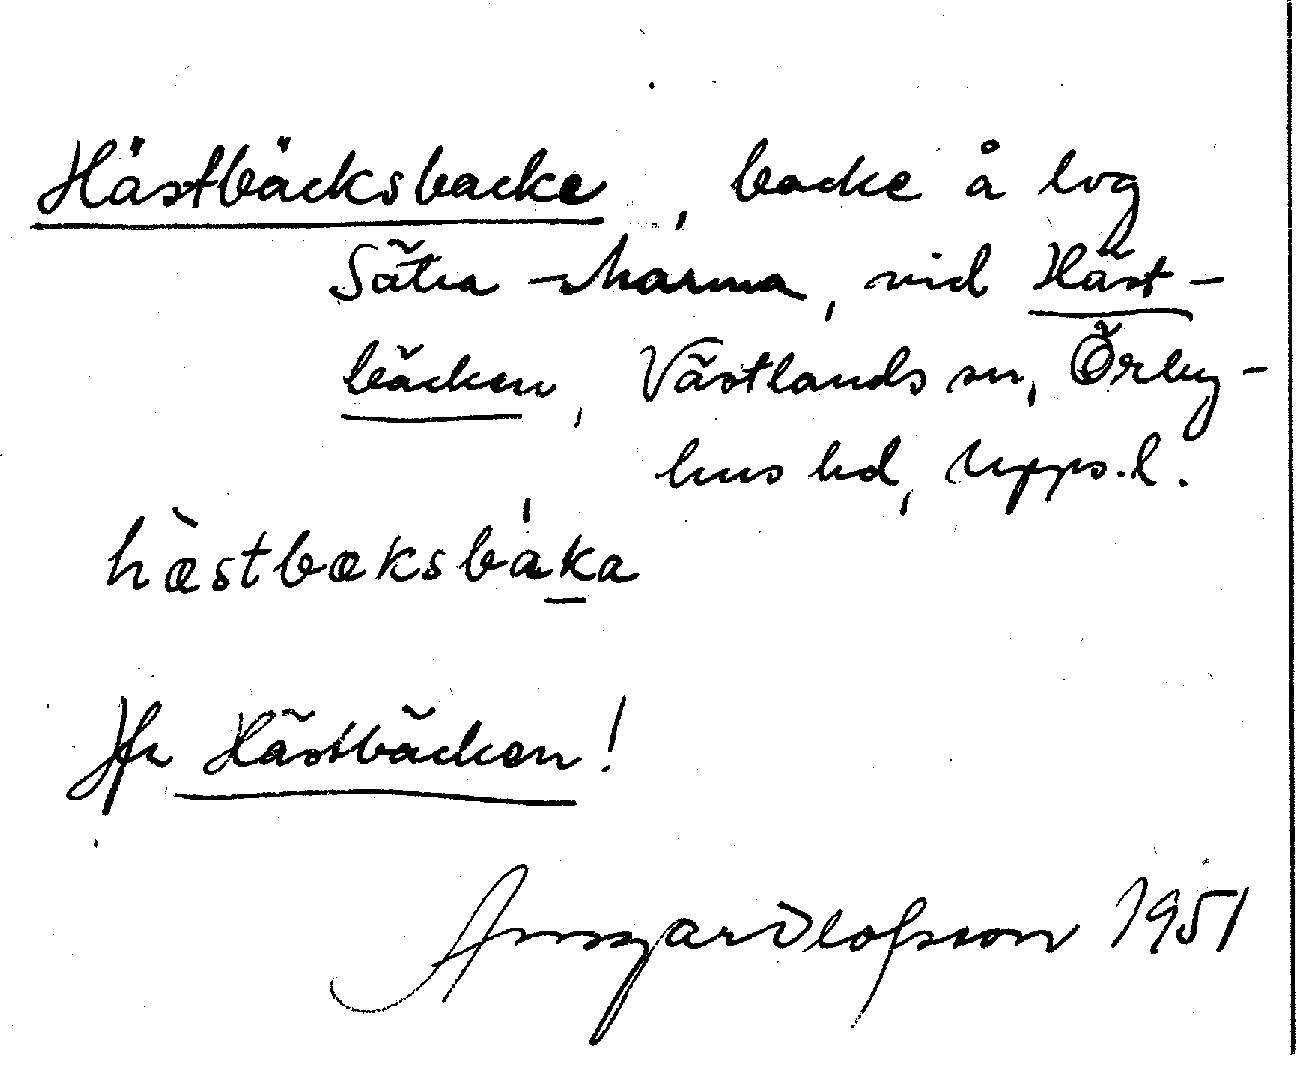 Hästbäcksbacke, backe å log
Sätra-, vid Häst-
bäcken, Västlands sn, Örby-
hus hd, Upps.l.
hæ̀stbæksbáka
Jfr Hästbäcken!
Ansgar Olofsson 1951